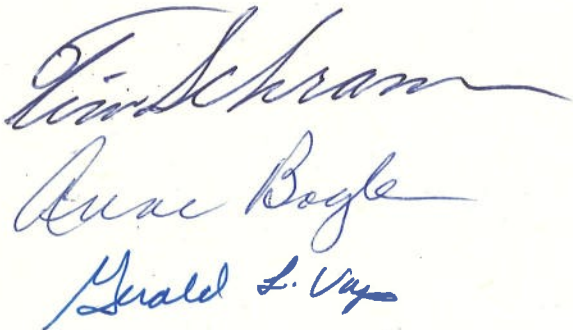 Tim Schram
Anne Boyle
Gerald L. Vap